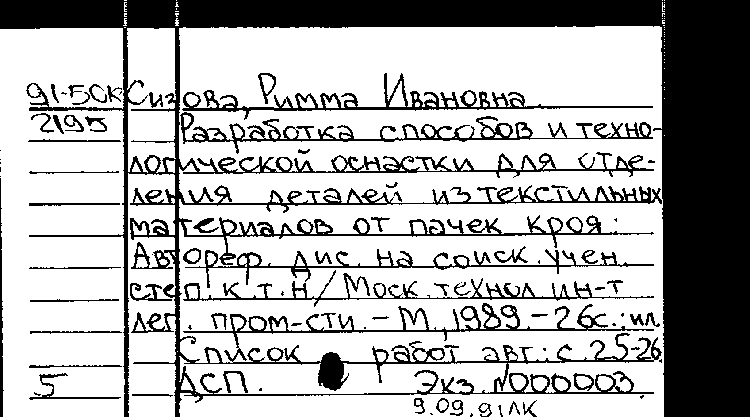 91-5ОК Сизова, Римма Ивановна
2195 Разработка способов и техно-
логической оснастки для отде-
ления деталей из текстильных
материалов от пачек кроя:
Автореф. дис. на соиск. учен.
степ. к.т.н/Моск. технол ин-т
лег. пром-сти. - М., 1989. - 26с.: ил.
Список работ авт.: с. 25-26
5 ДСП. Экз. N000003.
9.09.91ЛК